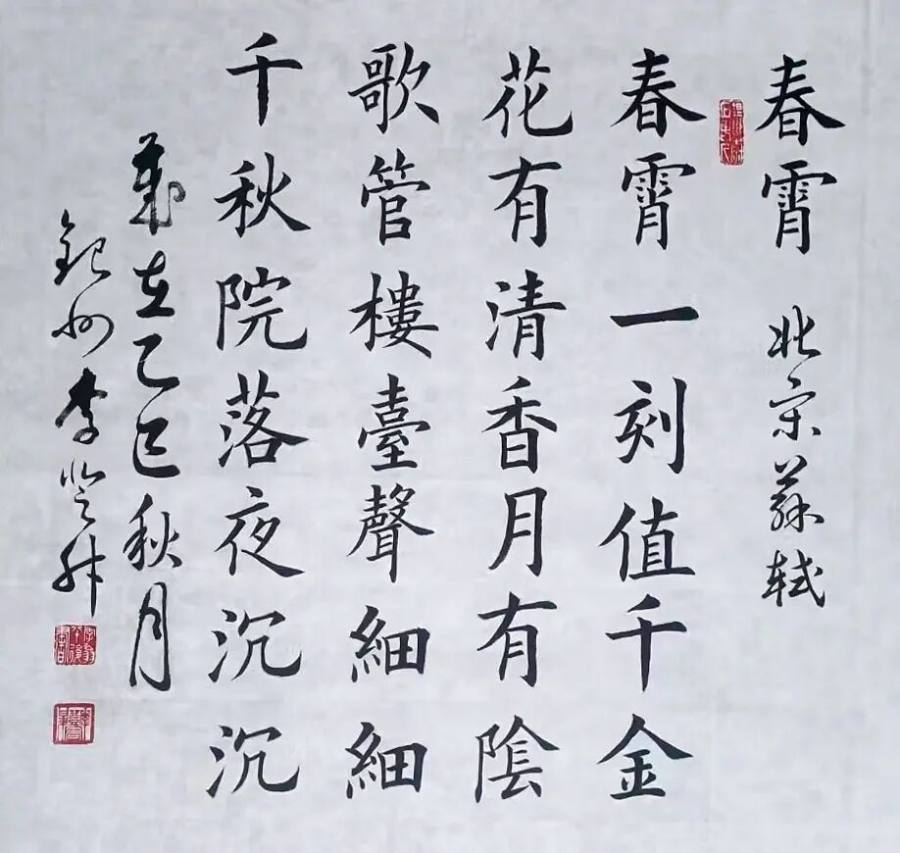 春霄 北宋 蘇軾
春霄一刻值千金
花有清香月有陰
歌管樓臺聲細細
千秋院落夜沉沉
歲在乙巳秋月
州李登